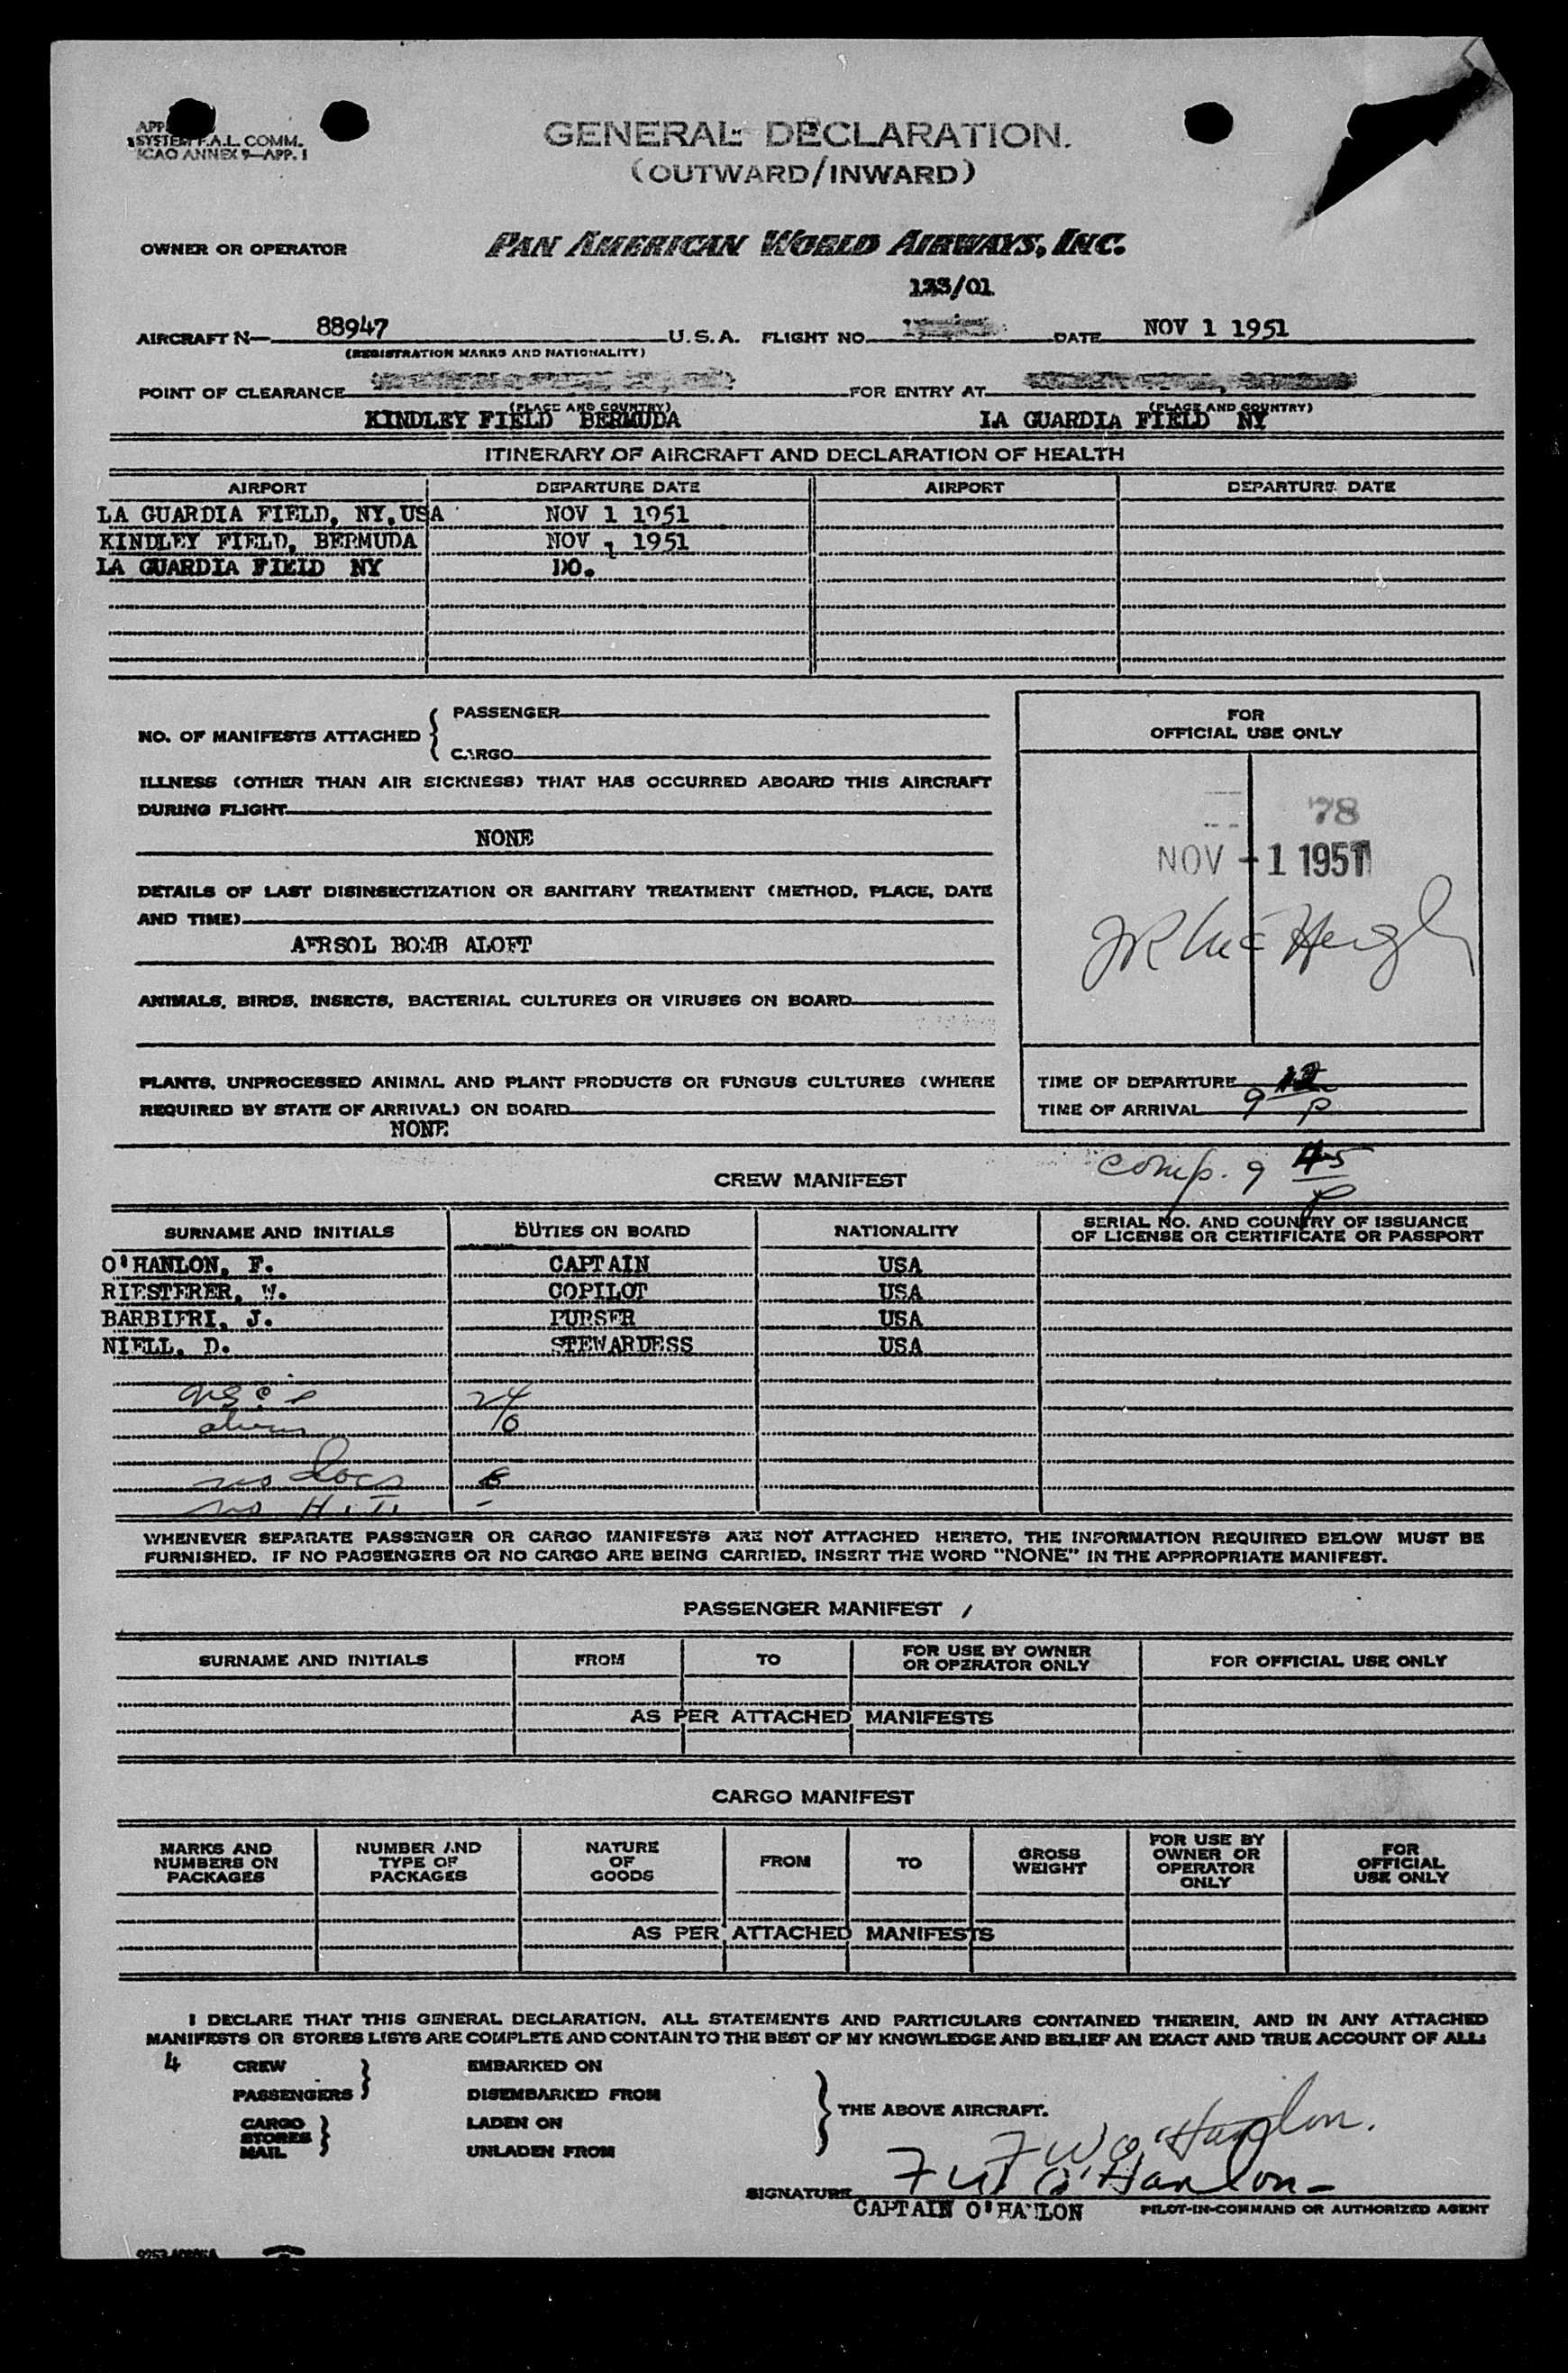 SYSTEM F.A.L. COMM.
ICAO ANNEX 9—APP. 1
GENERAL DECLARATION.
(OUTWARD/INWARD)
OWNER OR OPERATOR PAN AMERICAN WORLD AIRWAYS, INC.
133/01
AIRCRAFT N— 88947 U.S.A. FLIGHT NO. DATE NOV 1 1951
(REGISTRATION MARKS AND NATIONALITY)
POINT OF CLEARANCE FOR ENTRY AT
(PLACE AND COUNTRY) (PLACE AND COUNTRY)
KINDLEY FIELD BERMUDA LA GUARDIA FIELD NY
ITINERARY OF AIRCRAFT AND DECLARATION OF HEALTH
AIRPORT DEPARTURE DATE AIRPORT DEPARTURE DATE
LA GUARDIA FIELD, NY,USA NOV 1 1951
KINDLEY FIELD, BERMUDA NOV 1 1951
LA GUARDIA FIELD NY DO.
NO. OF MANIFESTS ATTACHED { PASSENGER
CARGO
ILLNESS (OTHER THAN AIR SICKNESS) THAT HAS OCCURRED ABOARD THIS AIRCRAFT
DURING FLIGHT
NONE
DETAILS OF LAST DISINSECTIZATION OR SANITARY TREATMENT (METHOD, PLACE, DATE
AND TIME)
AERSOL BOMB ALOFT
ANIMALS, BIRDS, INSECTS, BACTERIAL CULTURES OR VIRUSES ON BOARD
PLANTS, UNPROCESSED ANIMAL AND PLANT PRODUCTS OR FUNGUS CULTURES (WHERE
REQUIRED BY STATE OF ARRIVAL) ON BOARD
NONE
FOR
OFFICIAL USE ONLY
78
NOV -1 1951
TIME OF DEPARTURE
TIME OF ARRIVAL 9 12 P
comp. 9 45 P
CREW MANIFEST
SURNAME AND INITIALS DUTIES ON BOARD NATIONALITY SERIAL NO. AND COUNTRY OF ISSUANCE
OF LICENSE OR CERTIFICATE OR PASSPORT
O'HANLON, F. CAPTAIN USA
RIESTERER, W. COPILOT USA
BARBIERI, J. PURSER USA
NIELL, D. STEWARDESS USA
24
aliens 10
no docs 6
no H.T. –
WHENEVER SEPARATE PASSENGER OR CARGO MANIFESTS ARE NOT ATTACHED HERETO, THE INFORMATION REQUIRED BELOW MUST BE
FURNISHED. IF NO PASSENGERS OR NO CARGO ARE BEING CARRIED, INSERT THE WORD "NONE" IN THE APPROPRIATE MANIFEST.
PASSENGER MANIFEST /
SURNAME AND INITIALS FROM TO FOR USE BY OWNER
OR OPERATOR ONLY FOR OFFICIAL USE ONLY
AS PER ATTACHED MANIFESTS
CARGO MANIFEST
MARKS AND
NUMBERS ON
PACKAGES
NUMBER AND
TYPE OF
PACKAGES
NATURE
OF
GOODS
FROM
TO
GROSS
WEIGHT
FOR USE BY
OWNER OR
OPERATOR
ONLY
FOR
OFFICIAL
USE ONLY
AS PER ATTACHED MANIFESTS
I DECLARE THAT THIS GENERAL DECLARATION, ALL STATEMENTS AND PARTICULARS CONTAINED THEREIN, AND IN ANY ATTACHED
MANIFESTS OR STORES LISTS ARE COMPLETE AND CONTAIN TO THE BEST OF MY KNOWLEDGE AND BELIEF AN EXACT AND TRUE ACCOUNT OF ALL:
4 CREW EMBARKED ON
PASSENGERS DISEMBARKED FROM
THE ABOVE AIRCRAFT.
CARGO LADEN ON
STORES
MAIL UNLADEN FROM
F W O'Hanlon.
SIGNATURE F W O'Hanlon
CAPTAIN O'HANLON PILOT-IN-COMMAND OR AUTHORIZED AGENT